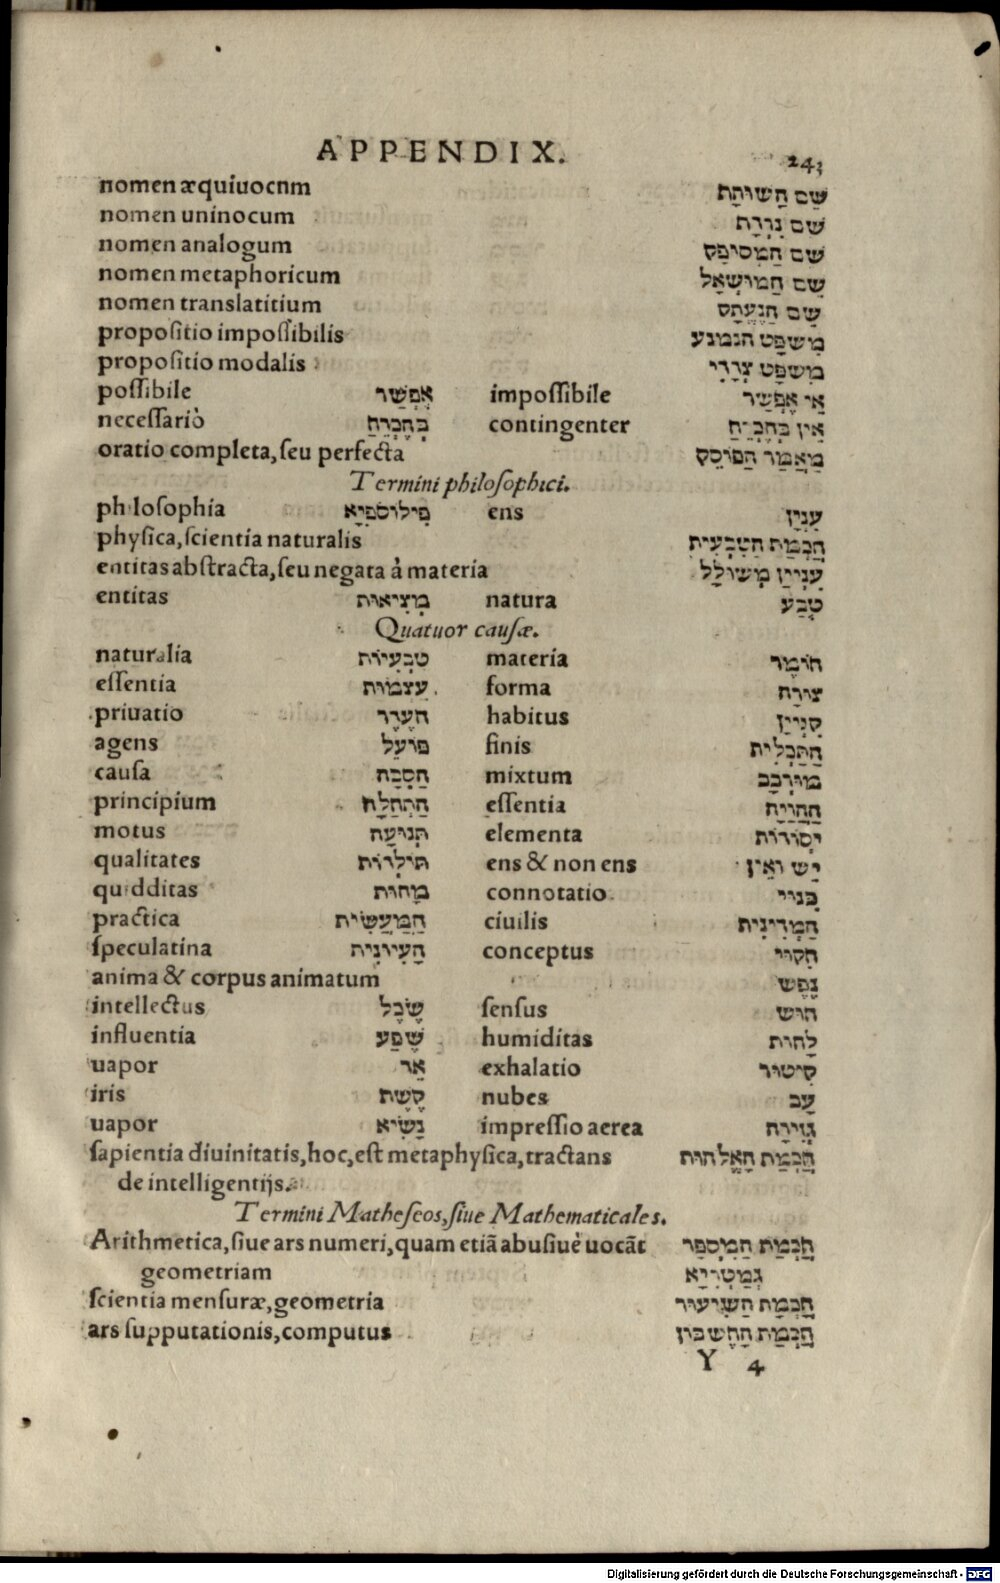 APPENDIX. 243
nomen æquiuocum שֵׁם הַשּׁוּתָּת
nomen uninocum שֵׁם נִרְדָּף
nomen analogum שֵׁם הַמְסוּפָּק
nomen metaphoricum שֵׁם הַמּוּשְׁאָל
nomen translatitium שֵׁם הַנֶּעְתָּק
propositio impossibilis מִשְׁפָּט הנמנע
propositio modalis מִשְׁפָּט צְדָדִי
possibile אֶפְשַׁר impossibile אִי אֶפְשַׁר
necessariò בְּהֶכְרֵחַ contingenter אֵין בְּהֶכְרֵחַ
oratio completa, seu perfecta מַאֲמַר הַפּוֹסֵק
Termini philosophici.
philosophia פִילוֹסֹפִיָא ens עִנְיָן
physica, scientia naturalis חָכְמַת הַטִּבְעִית
entitas abstracta, seu negata à materia עִנְיָין מְשׁוּלָל
entitas מְצִיאוּת natura טֶבַע
Quatuor causæ.
naturalia טִבְעִיוֹת materia חוֹמֶר
essentia עַצְמוּת forma צוּרָה
priuatio הֶעְדֵּר habitus קִנְיָין
agens פּוֹעֵל finis הַתַּכְלִית
causa הַסִּבָּה mixtum מוּרְכָּב
principium הַתְחָלָה essentia הַהֲוָיָה
motus תְּנוּעָה elementa יְסוֹדוֹת
qualitates ens & non ens יֵשׁ וְאֵין
quidditas מַהוּת connotatio כִּנּוּי
practica הַמַּעֲשִׂית ciuilis הַמְּדִינִית
speculatina הָעִיּוּנִית conceptus חִקּוּי
anima & corpus animatum נֶפֶשׁ
intellectus שֶׂכֶל sensus חוּשׁ
influentia שֶׁפַע humiditas לַחוּת
uapor אֵד exhalatio קִיטוּר
iris קֶשֶׁת nubes עָב
uapor נָשִׂיא impressio aerea גְּזֵירָה
sapientia diuinitatis, hoc, est metaphysica, tractans חָכְמַת הָאֱלֹהוּת
de intelligentijs.
Termini Matheseos, siue Mathematicales.
Arithmetica, siue ars numeri, quam etiã abusiuè uocãt חָכְמַת הַמִּסְפָּר
geometriam גְּמַטְרִיָּא
scientia mensuræ, geometria חָכְמַת הַשִּׁיעוּר
ars supputationis, computus חָכְמַת הַחֶשְׁבּוֹן
Y 4
Digitalisierung gefördert durch die Deutsche Forschungsgemeinschaft - DFG